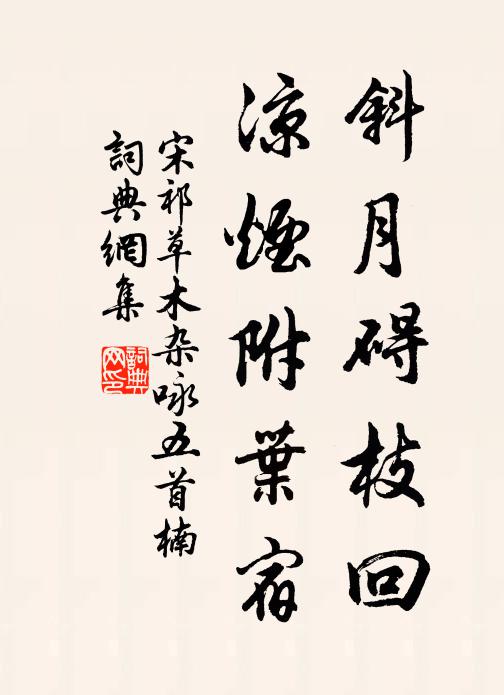 斜月碍枝回
凉煙附葉宿
宋祁草木杂咏五首楠
詞典網集
詞典
网印